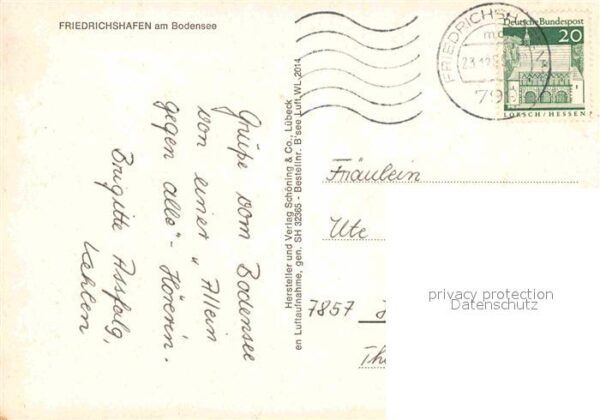 FRIEDRICHSHAFEN am Bodensee
Grüße vom Bodensee
von einer "Allein
gegen alle" - Hörerin.
Brigitte Assfalg,
Hersteller und Verlag Schöning & Co., Lübeck
en Luftaufnahme, gen. SH 32365 - Bestellnr. B'see Luft.WL-2014
FRIEDRICHSH
79
Deutsche Bundespost
20
LORSCH/HESSEN
Fräulein
Ute
7857
Th
privacy protection
Datenschutz